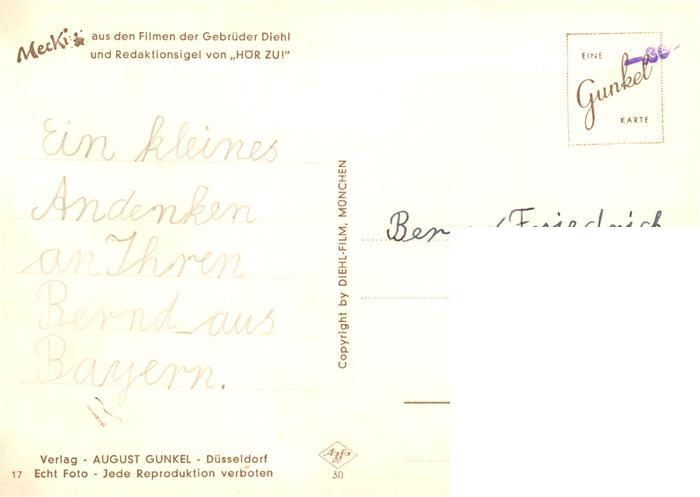 Mecki aus den Filmen der Gebrüder Diehl
und Redaktionsigel von „HÖR ZU!"
EINE
Gunkel
KARTE
—30-
Ein kleines
Andenken
an Ihren
Bernd aus
Bayern.
Copyright by DIEHL-FILM, MÜNCHEN
Friedrich
Verlag - AUGUST GUNKEL - Düsseldorf
17 Echt Foto - Jede Reproduktion verboten
Agfa
30